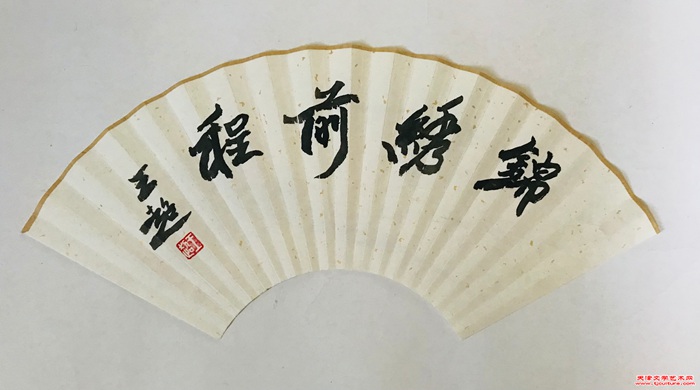 錦繡前程
王超
天津文学艺术网
www.tjculture.com